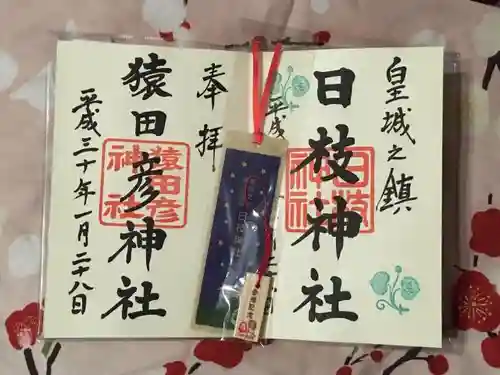 皇城之鎮
日枝神社
日枝神社
平成
奉拝
猿田彦神社
猿田彦神社
平成三十年一月二十八日